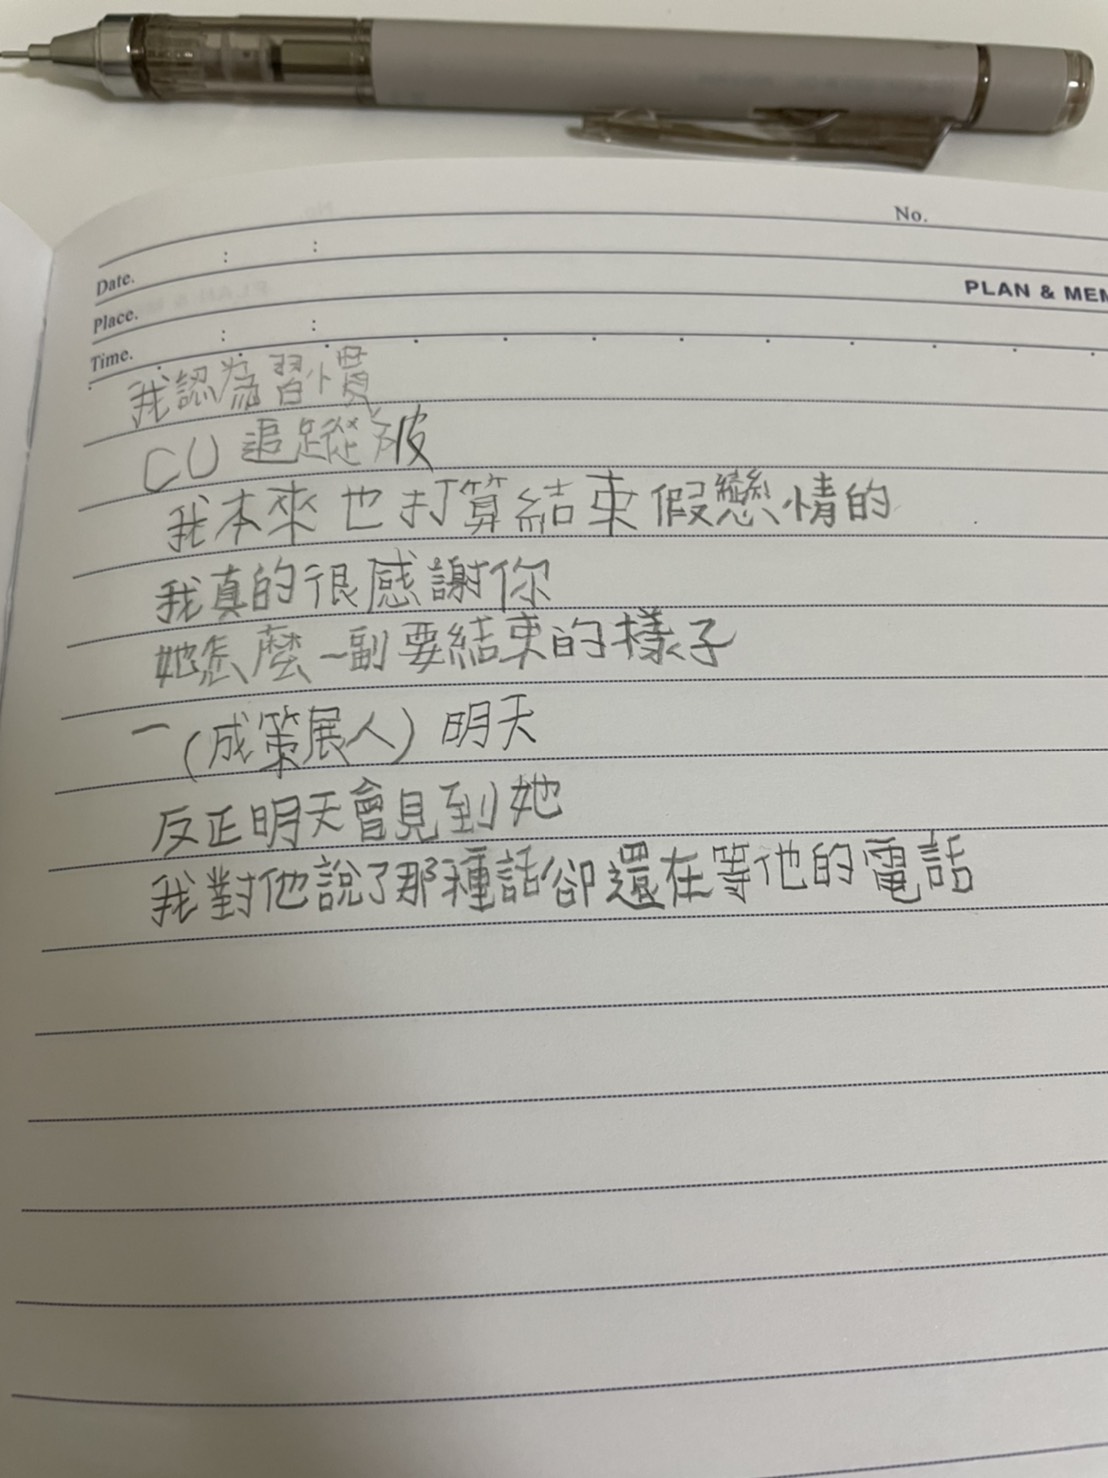 No.
Date. : :
PLAN & MEM
Place.
Time. : :
我認為習慣
CU 追蹤被
我本來也打算結束假戀情的
我真的很感謝你
她怎麼一副要結束的樣子
一(成策展人) 明天
反正明天會見到她
我對他說了那種話卻還在等他的電話